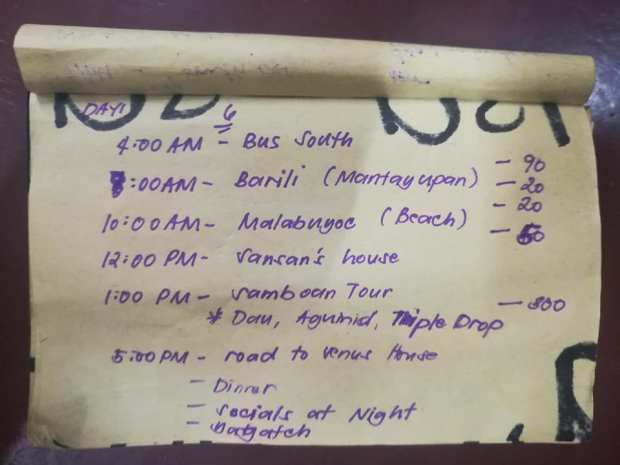 DAY1 6
4:00 AM - Bus South
- 90
8:00AM - Barili (Mantayupan) - 20
- 20
10:00AM - Malabuyoc (Beach) - 50
12:00 PM - Sansan's house
1:00 PM - Samboan Tour - 300
* Dau, Aguinid, Triple Drop
5:00PM - road to Venus House
- Dinner
- Socials at Night